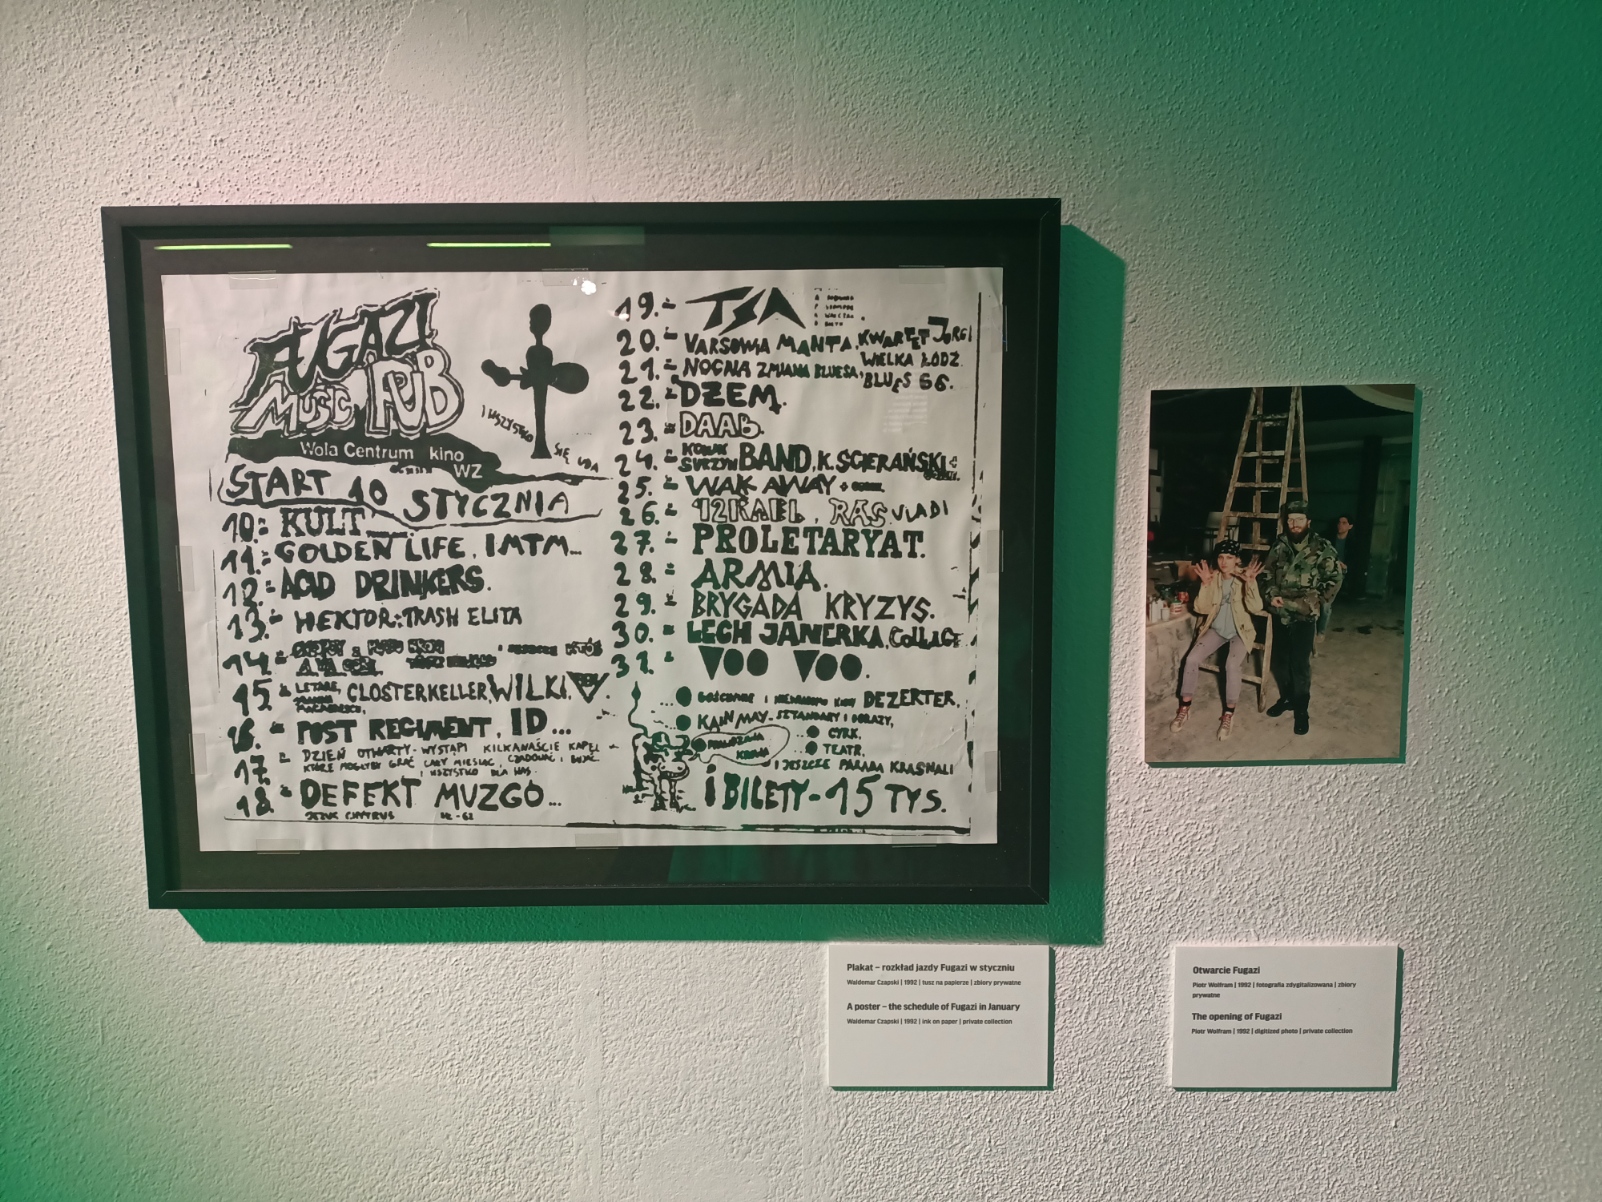 FUGAZI
MUSIC PUB
Wola Centrum kino
WZ
I WSZYSTKO SIĘ UDA
START 10 STYCZNIA
10.: KULT
11.: GOLDEN LIFE, IMTM...
12.: ACID DRINKERS.
13.: HEKTOR: TRASH ELITA
14.:
15. CLOSTERKELLER, WILKI,
16. POST REGIMENT, ID...
17. DZIEŃ OTWARTY - WYSTĄPI KILKANAŚCIE KAPEL
KTÓRE MOGŁYBY GRAĆ CAŁY MIESIĄC,
I WSZYSTKO DLA NAS.
18. DEFEKT MUZGÓ...
19. TSA
20. VARSOVIA MANTA, KWARTET JORGI
21. NOCNA ZMIANA BLUESA, WIELKA ŁÓDŹ.
BLUES 66.
22. DŻEM.
23. DAAB.
24. BAND, K. ŚCIERAŃSKI
25. WAK AWAY +
26. IZRAEL, RAS VLADI
27. PROLETARYAT.
28. ARMIA.
29. BRYGADA KRYZYS.
30. LECH JANERKA, COLLAGE
31. VOO VOO.
DEZERTER,
KAIN MAY - SZTANDARY I OBRAZY,
CYRK,
TEATR,
I JESZCZE PARADA KRASNALI
I BILETY - 15 TYS.
Plakat – rozkład jazdy Fugazi w styczniu
Waldemar Czapski | 1992 | tusz na papierze | zbiory prywatne
A poster – the schedule of Fugazi in January
Waldemar Czapski | 1992 | ink on paper | private collection
Otwarcie Fugazi
Piotr Wolfram | 1992 | fotografia zdygitalizowana | zbiory
prywatne
The opening of Fugazi
Piotr Wolfram | 1992 | digitized photo | private collection